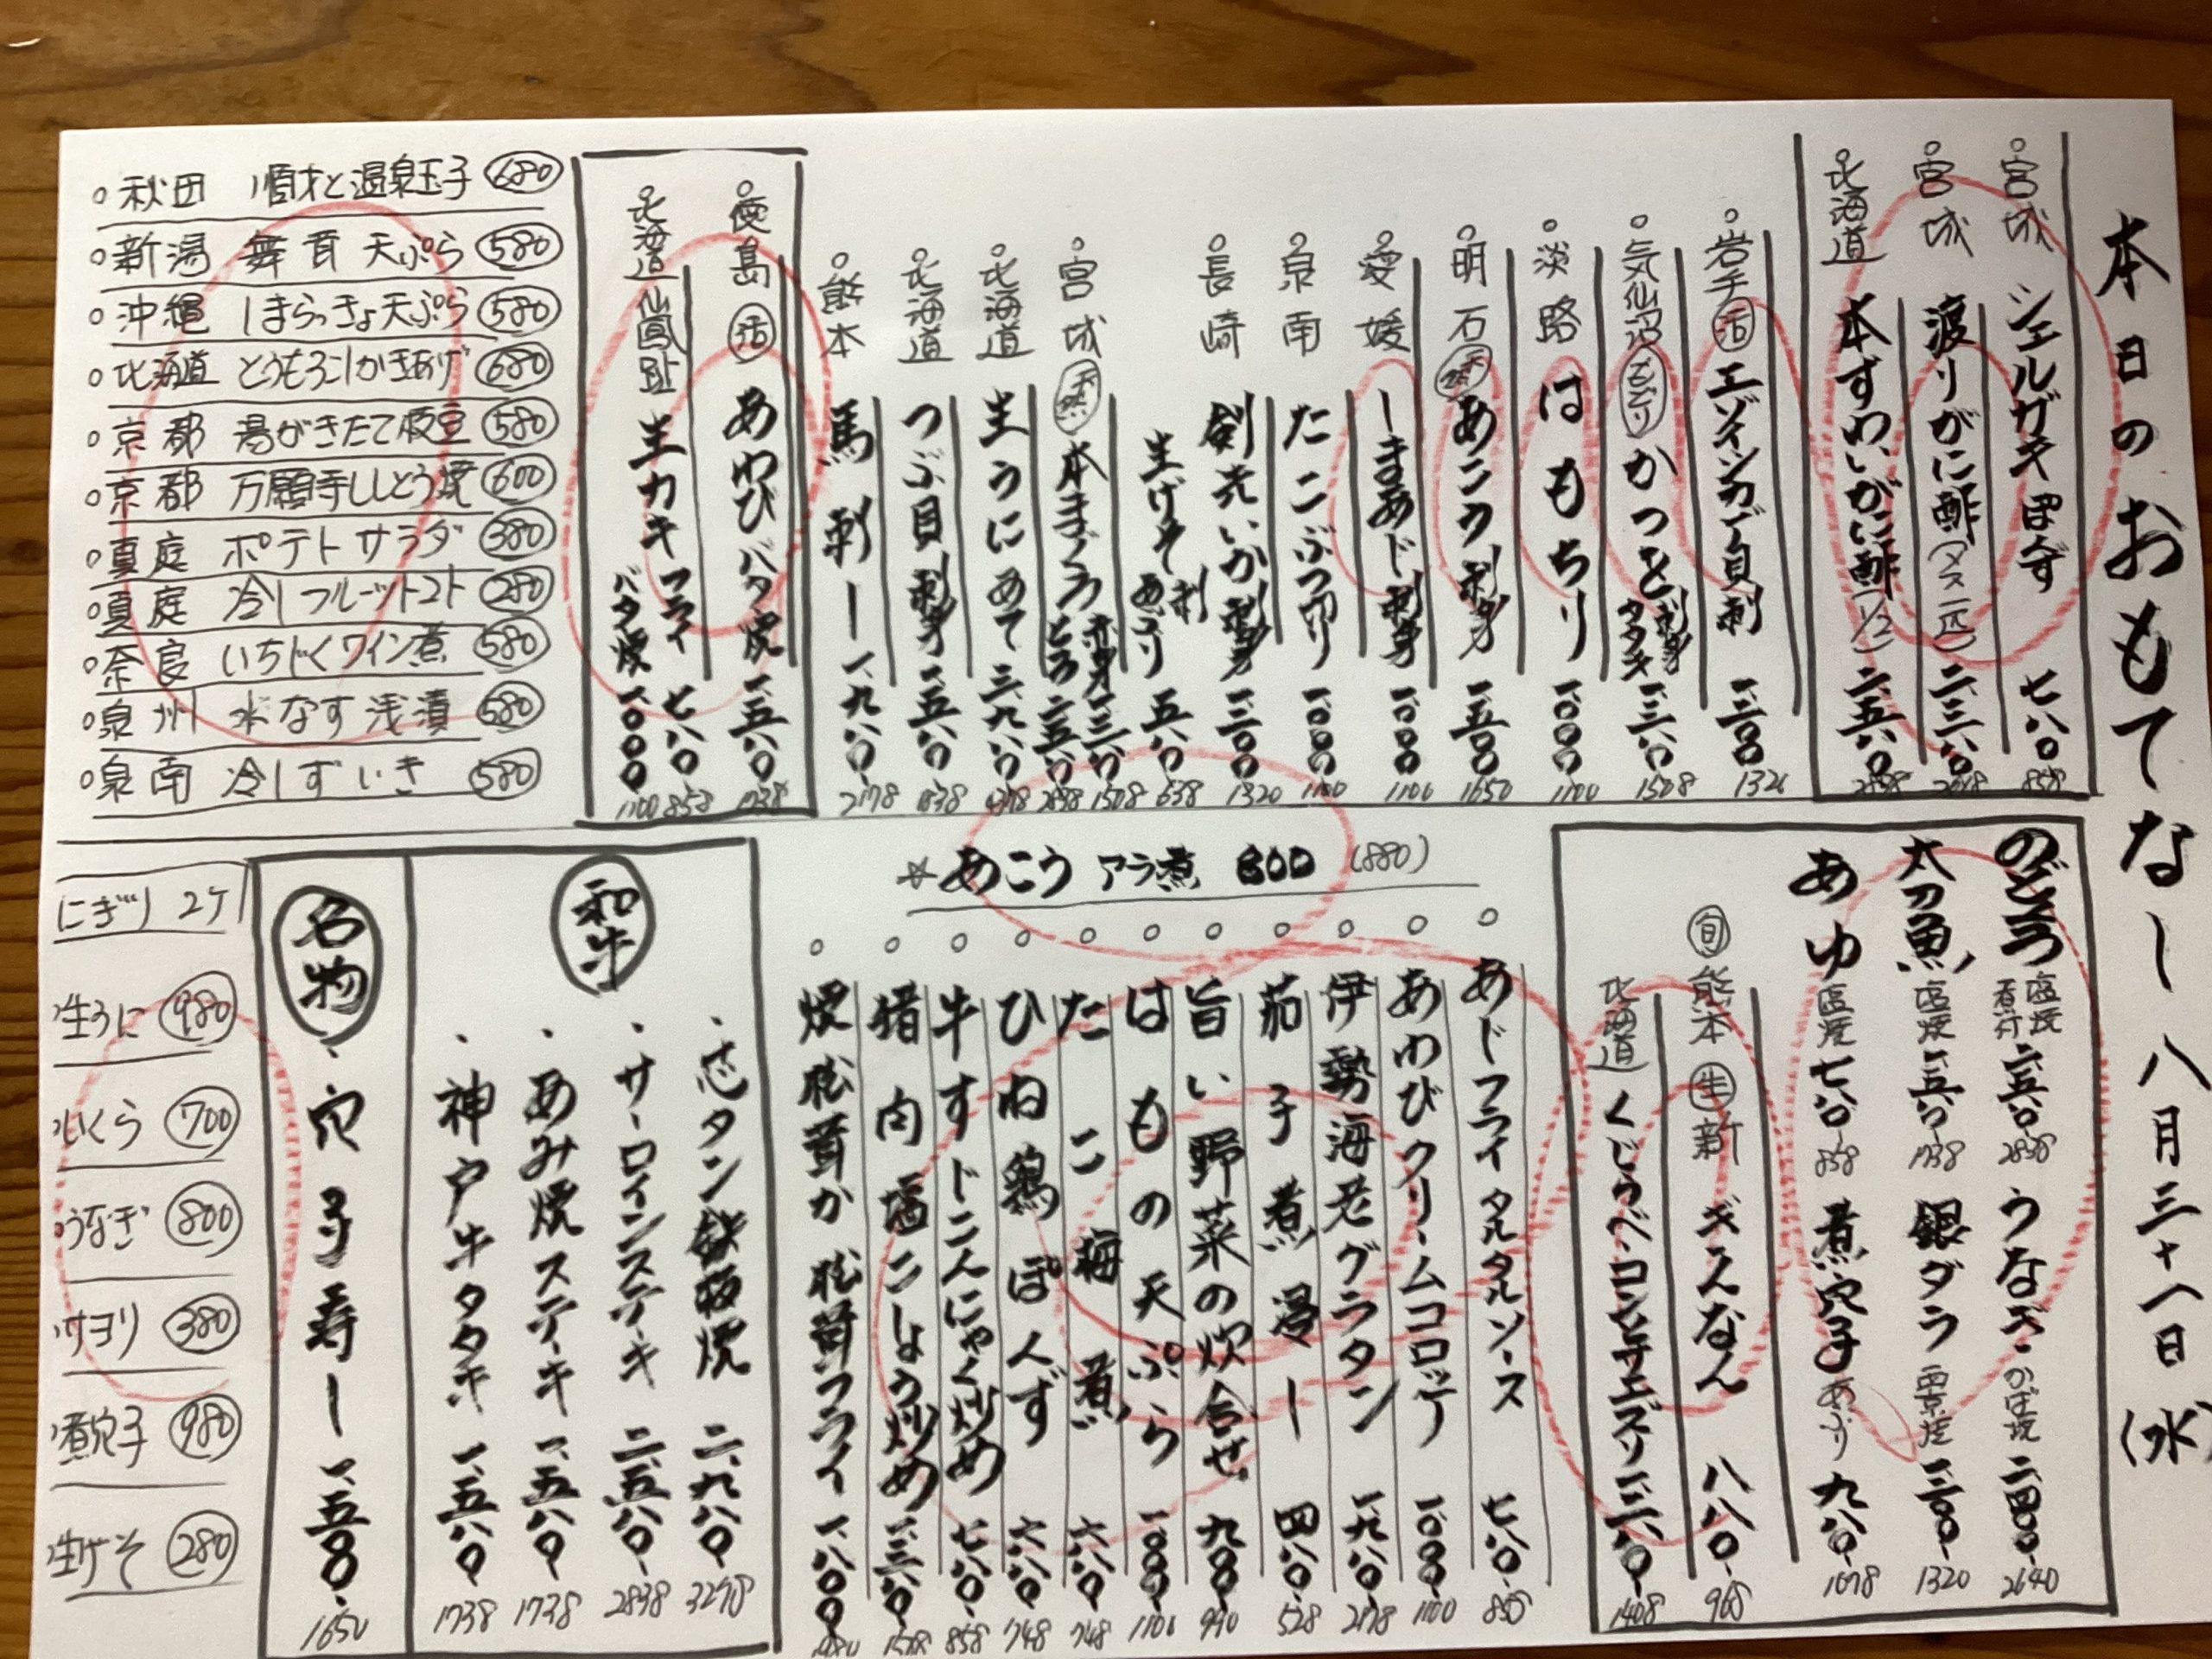 本日のおもてなし 八月三十一日(水)
宮城 シェルガキ ぽん酢 七八〇 858
宮城 渡りがに酢(メス一匹) 二三八〇
北海道 本ずわいがに酢(1/2) 二五八〇 2838
岩手 活 エゾイシカゲ貝 刺 一二〇〇
気仙沼 もどり かつを 刺身 タタキ 一三八〇 1518
淡路 はもちり 一〇〇〇 1100
明石 天然 あこう 刺身 一五〇〇 1650
愛媛 しまあじ 刺身 一〇〇〇 1100
泉南 たこぶつ切り 一〇〇〇 1100
長崎 剣先いか 刺身 一二〇〇 1320
生げそ 刺 あぶり 五八〇 638
宮城 天然 本まぐろ 赤身 一三八〇 1518 とろ 二五八〇 2838
北海道 生うにあて 三九八〇 4378
北海道 つぶ貝 刺身 一五八〇 1738
熊本 馬刺し 一九八〇 2178
徳島 活 あわびバタ焼 一五八〇 1738
北海道 仙鳳趾 生カキ フライ 七八〇 858 バタ焼 一〇〇〇 1100
秋田 順才と温泉玉子 680
新潟 舞茸 天ぷら 580
沖縄 しまらっきょ天ぷら 580
北海道 とうもろこしかきあげ 680
京都 湯がきたて枝豆 580
京都 万願寺ししとう焼 600
真庭 ポテトサラダ 380
真庭 冷しフルーツトマト 280
奈良 いちじくワイン煮 580
泉州 水なす 浅漬 580
泉南 冷しずいき 580
のどぐろ 塩焼 煮付 二五八〇 2838 うなぎ かば焼 二四〇〇 2640
太刀魚 塩焼 一五八〇 1738 銀ダラ 西京焼 一二〇〇 1320
あゆ 塩焼 七八〇 858 煮穴子 あぶり 九八〇 1078
旬 熊本 生新 ぎんなん 八八〇 968
北海道 くじらベーコン 1408
☆あこう アラ煮 800 (880)
あじフライ タルタルソース 七八〇 858
あわびクリームコロッケ 一〇〇〇 1100
伊勢海老グラタン 一九八〇 2178
茄子煮浸し 四八〇 528
旨い野菜の炊合せ 九〇〇 990
はもの天ぷら 一〇〇〇 1100
たこ梅煮 六八〇 748
ひね鶏ぽんず 六八〇 748
牛すじこんにゃく炒め 七八〇 858
猪肉塩こしょう炒め 一三八〇 1518
焼松茸か松茸フライ 一八〇〇 1980
和牛
芯タン鉄板焼 二九八〇 3278
サーロインステーキ 二五八〇 2838
あみ焼ステーキ 一五八〇 1738
神戸牛タタキ 一五八〇 1738
名物
穴子寿し 一五〇〇 1650
にぎり 2ケ
生うに 980
いくら 700
うなぎ 800
サヨリ 380
煮穴子 980
生ゲそ 280